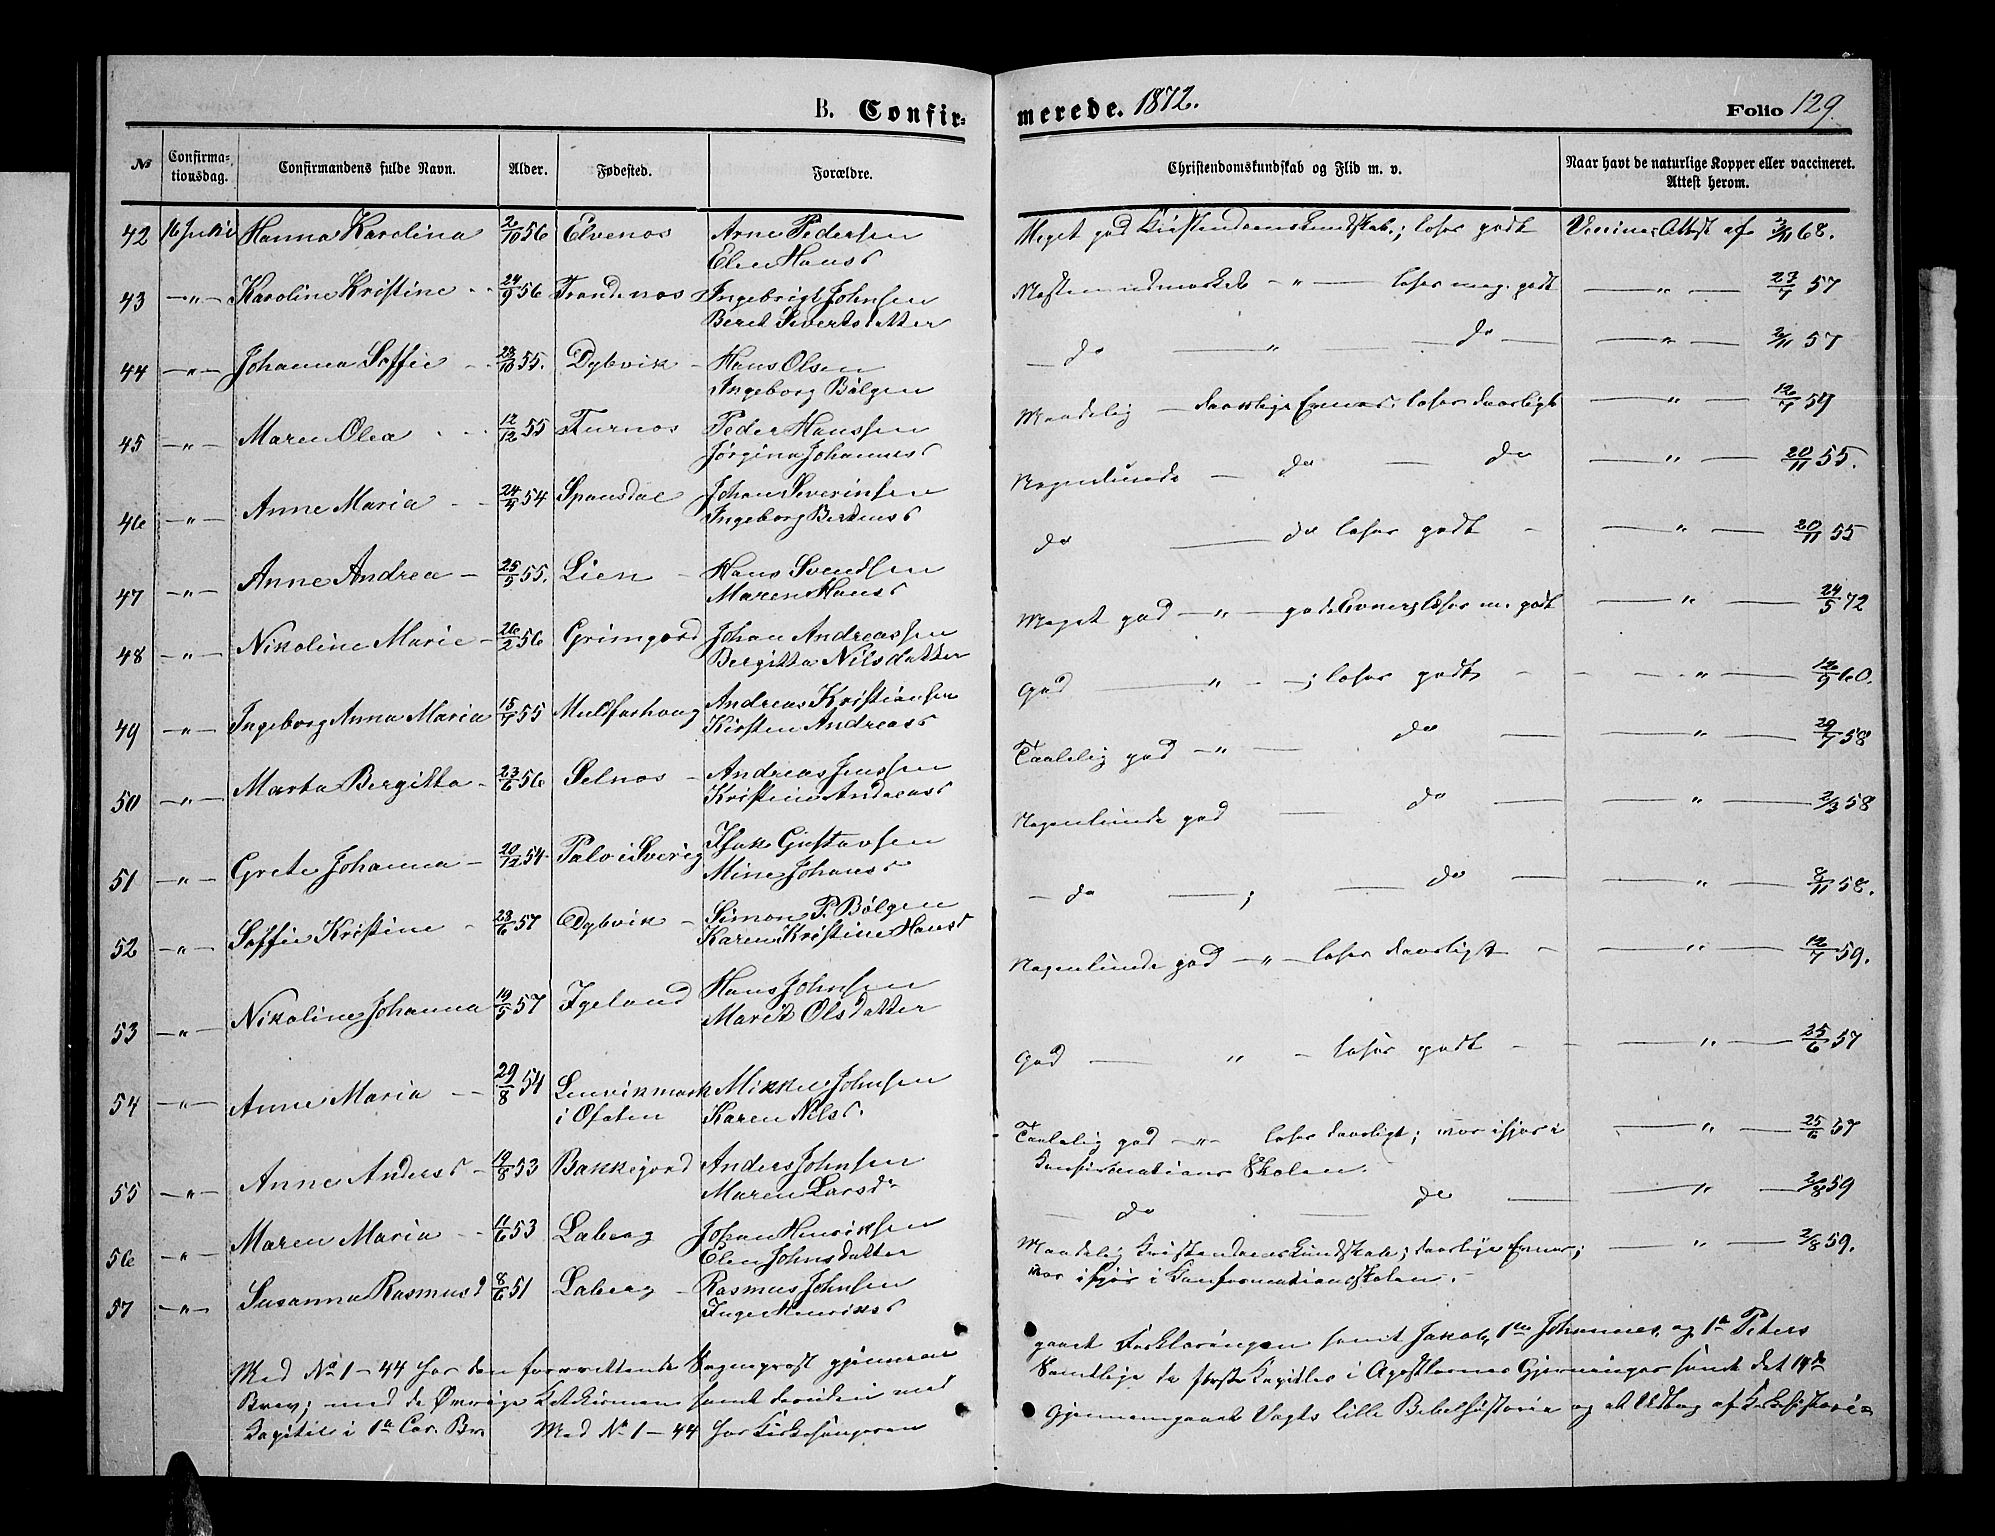 B. Confir-
merede. 1872.
Folio 129.
No
Confirma-
tionsdag.
Confirmandens fulde Navn.
Alder.
Fødested.
Forældre.
Christendomskundskab og Flid m. v.
Naar havt de naturlige Kopper eller vaccineret.
Attest herom.
42 16 Juni Hanna Karolina 2/10 56 Elvenes Arne Pedersen
Elen Hansd Meget god Kristendomskundskab; læser godt Vaccine Attest af 3/11 68.
43 —"— Karoline Kristine 24/9 56 Trondenes Ingebrigt Johnsen
Beret Sivertsdatter Næsten udmærket —"— læser meg. godt —"— 23/7 57
44 —"— Johanna Soffie 23/10 55. Dybvik Hans Olsen
Ingeborg Bølgen — do —"— do — —"— 2/11 57
45 —"— Maren Olea 12/12 55 Turnos Peder Hanssen
Jørgina Johannesd Maadelig — daarlige Evner. læser daarligt —"— 12/7 59
46 —"— Anne Maria 24/5 54 Spansdal Johan Severinsen
Ingeborg Berdinesd Nogenlunde — do — do —"— 20/11 55.
47 —"— Anne Andrea 25/5 55. Lien Hans Svendsen
Maren Hansd do — do læser godt —"— 20/11 55
48 —"— Nikoline Marie 26/2 56 Grimgord Johan Andreassen
Bergitta Nilsdatter Meget god —"— gode Evner; læser m. godt —"— 24/5 72
49 —"— Ingeborg Anna Maria 15/7 55 Muldfarhoug Andreas Kristiansen
Kirsten Andreasd God —"— ; læser godt —"— 12/9 60.
50 —"— Marta Bergitta 23/6 56 Selnes Andreas Jenssen
Kristine Andreasd Taalelig god —"— do —"— 29/7 58
51 —"— Grete Johanna 20/12 54 Palo i Sverig Isak Gustavsen
Mine Johansd Nogenlunde god — do —"— 2/3 58
52 —"— Soffie Kristine 28/6 57 Dybvik Simon P. Bølgen
Karen Kristine Hansd — do — ; — do —"— 8/11 58.
53 —"— Nikoline Johanna 19/5 57 Igeland Hans Johnsen
Marit Olsdatter Nogenlunde god —"— læser daarligt —"— 12/7 59.
54 —"— Anne Maria 29/8 54 Lenvikmark
i Ofoten Mikkel Johnsen
Karen Nilsd. God —"— læser godt —"— 25/6 57
55 —"— Anne Andersd 19/8 53 Bakkejord Anders Johnsen
Maren Larsdr Taalelig god —"— læser daarligt; var ifjor i
Konfirmations Skolen. —"— 25/6 57
56 —"— Maren Maria 11/6 53 Laberg Johan Henriksen
Elen Johnsdatter — do — do —"— 2/8 59
57 —"— Susanna Rasmusd 8/6 51 Laberg Rasmus Johnsen
Inger Henriksd Maadelig Kristendomskundskab; daarlige Evner;
var ifjor i Konfirmationsskolen. —"— 2/8 59.
Med No 1—44 har den forrettende Sogneprest gjennem-
gaaet Forklaringen samt Jakob, 1ste Johannes, og 1ste Peters
Brev; med de Øvrige Katekismen samt desuden med
Samtlige de første Kapitler i Apostlernes Gjerninger samt det 14de
Kapitel i 1ste Cor. Br. Med No 1—44 har Kirkesangeren
Gjennemgaaet Vogts lille Bibelhistorie og et Udtog af Kirkehistori-